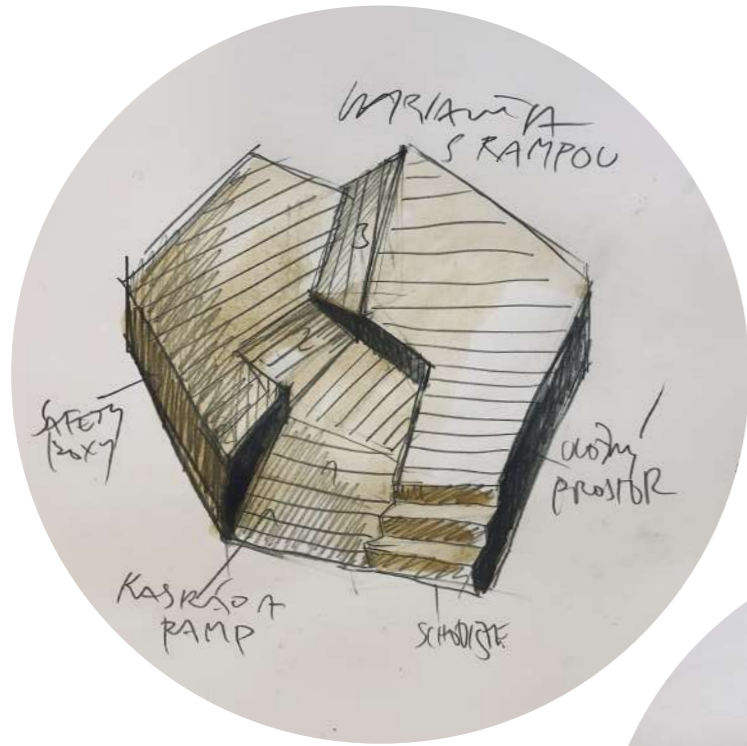 VARIANTA
S RAMPOU
3
2
1
SAFETY
BOXY
ÚLOŽNÝ
PROSTOR
KASKÁDA
RAMP
SCHODIŠTE